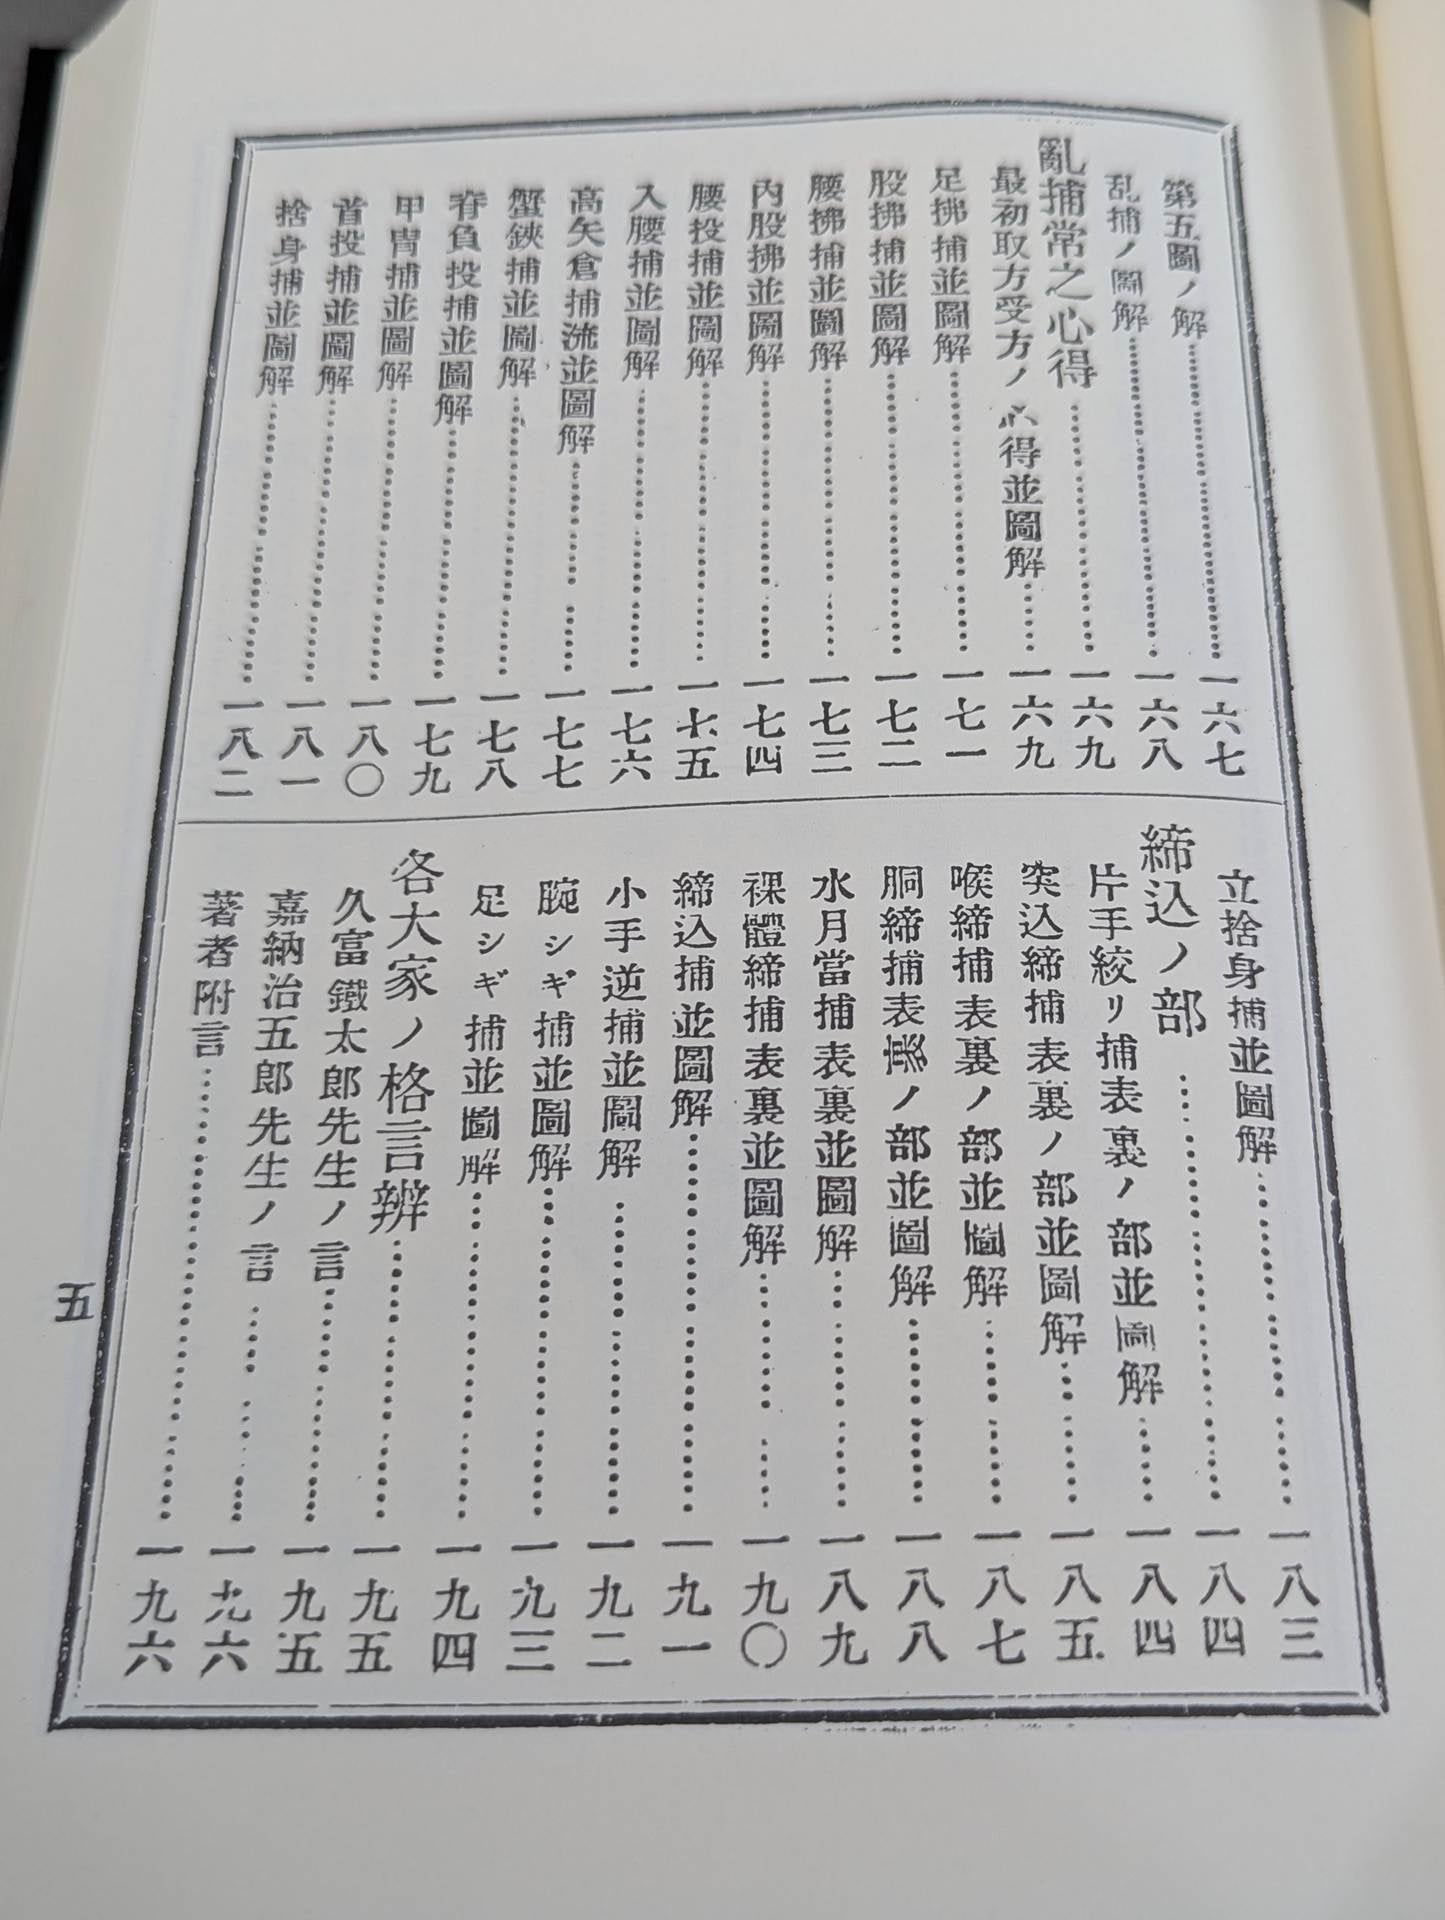 第五圖ノ解……一六七
乱捕ノ圖解……一六八
亂捕常之心得……一六九
最初取方受方ノ心得並圖解……一六九
足拂捕並圖解……一七一
股拂捕並圖解……一七二
腰拂捕並圖解……一七三
內股拂並圖解……一七四
腰投捕並圖解……一七五
入腰捕並圖解……一七六
高矢倉捕流並圖解……一七七
蟹鋏捕並圖解……一七八
脊負投捕並圖解……一七九
甲冑捕並圖解……一八〇
首投捕並圖解……一八一
捨身捕並圖解……一八二
立捨身捕並圖解……一八三
締込ノ部……一八四
片手絞リ捕表裏ノ部並圖解……一八四
突込締捕表裏ノ部並圖解……一八五
喉締捕表裏ノ部並圖解……一八七
胴締捕表裏ノ部並圖解……一八八
水月當捕表裏並圖解……一八九
裸體締捕表裏並圖解……一九〇
締込捕並圖解……一九一
小手逆捕並圖解……一九二
腕シギ捕並圖解……一九三
足シギ捕並圖解……一九四
各大家ノ格言辨……一九五
久富鐵太郎先生ノ言……一九五
嘉納治五郎先生ノ言……一九六
著者附言……一九六
五